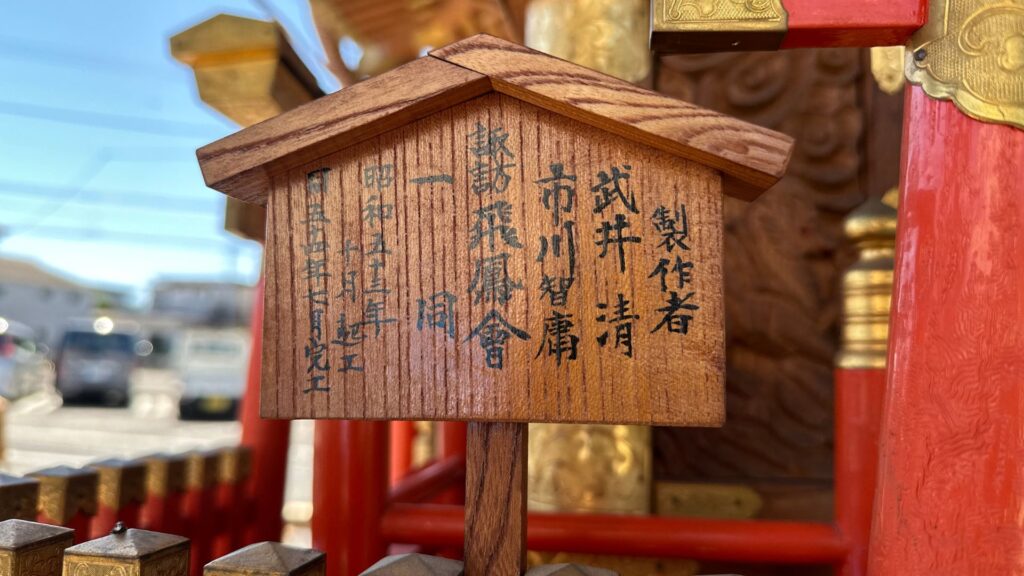 製作者
武井 清
市川智庸
諏訪飛鳳會
一同
昭和五十三年
十月起工
五十四年七月完工